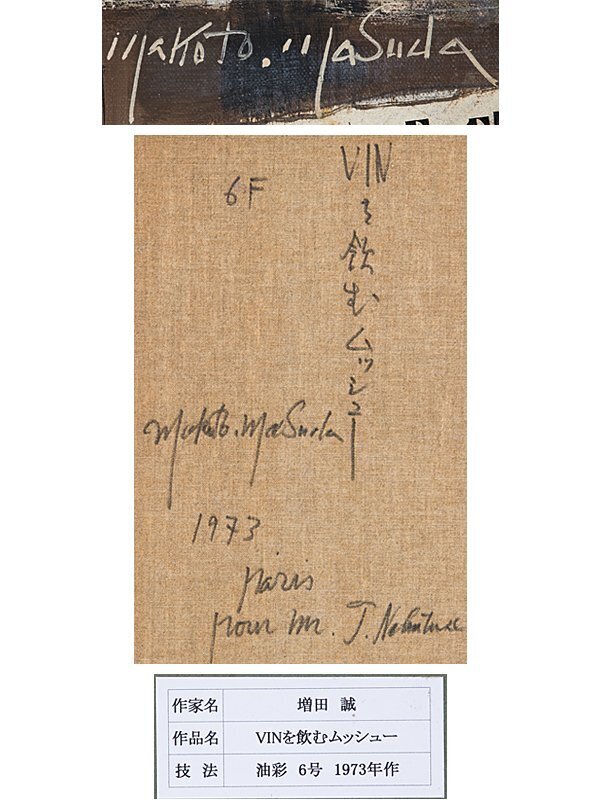 Makoto.Masuda
6F
VINを飲むムッシュー
Makoto.Masuda
1973
Paris
pour Mr. T.
作家名 増田 誠
作品名 VINを飲むムッシュー
技法 油彩 6号 1973年作